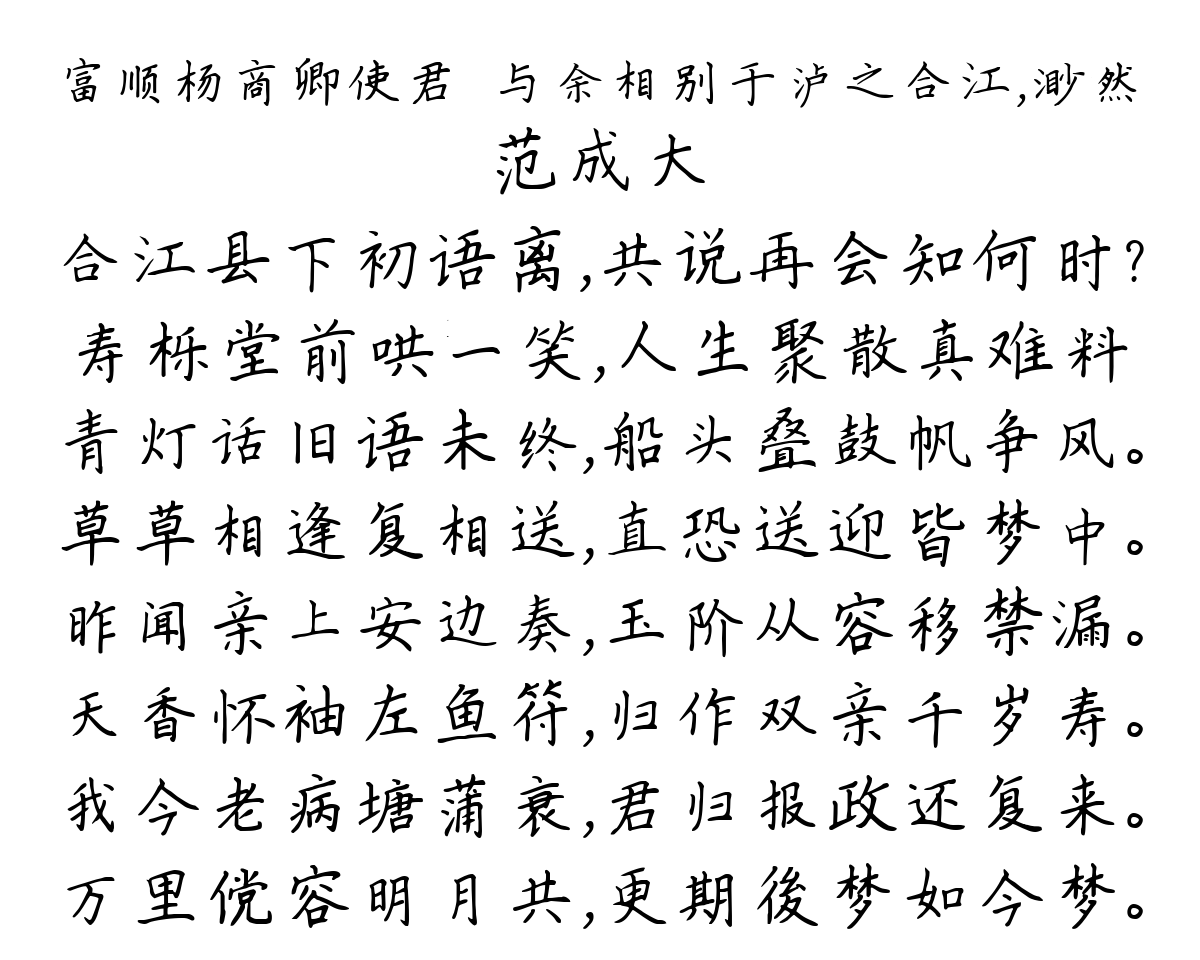 富顺杨商卿使君 与余相别于泸之合江,渺然
范成大
合江县下初语离,共说再会知何时?
寿栎堂前哄一笑,人生聚散真难料
青灯话旧语未终,船头叠鼓帆争风。
草草相逢复相送,直恐送迎皆梦中。
昨闻亲上安边奏,玉阶从容移禁漏。
天香怀袖左鱼符,归作双亲千岁寿。
我今老病塘蒲衰,君归报政还复来。
万里傥容明月共,更期後梦如今梦。